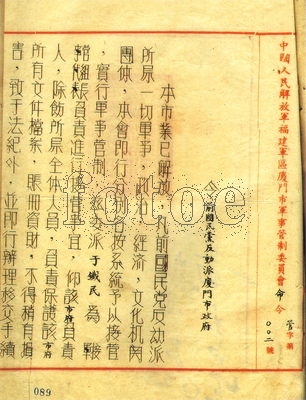 中國人民解放軍福建軍區廈門市軍事管制委員會命令
管字第
〇〇二號
令前國民黨反動派廈門市政府
本市業已解放，凡前國民黨反動派
所屬一切軍事，政治，經濟，文化機關
團体，本會即行分別各按系統予以接管
，實行軍事管制，茲派
于鐵民為
負責進行接管事宜，仰該市府負責
人，除飭所屬全体人員，負責保護該市府
所有文件檔案，賬冊資財，不得稍有損
害，致干法紀外，並即行辦理移交手續
fotoe
089